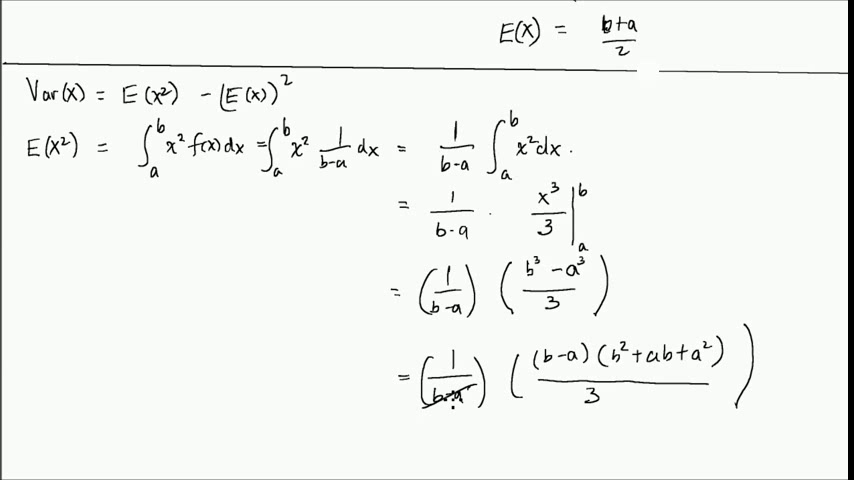 E(X) = b+a/2
Var(X) = E(X²) - (E(X))²
E(X²) = ∫ₐᵇ x² f(x) dx = ∫ₐᵇ x² 1/b-a dx = 1/b-a ∫ₐᵇ x² dx.
= 1/b-a · x³/3 |ₐᵇ
= (1/b-a) (b³ - a³/3)
= (1/b-a) ((b-a)(b²+ab+a²)/3)